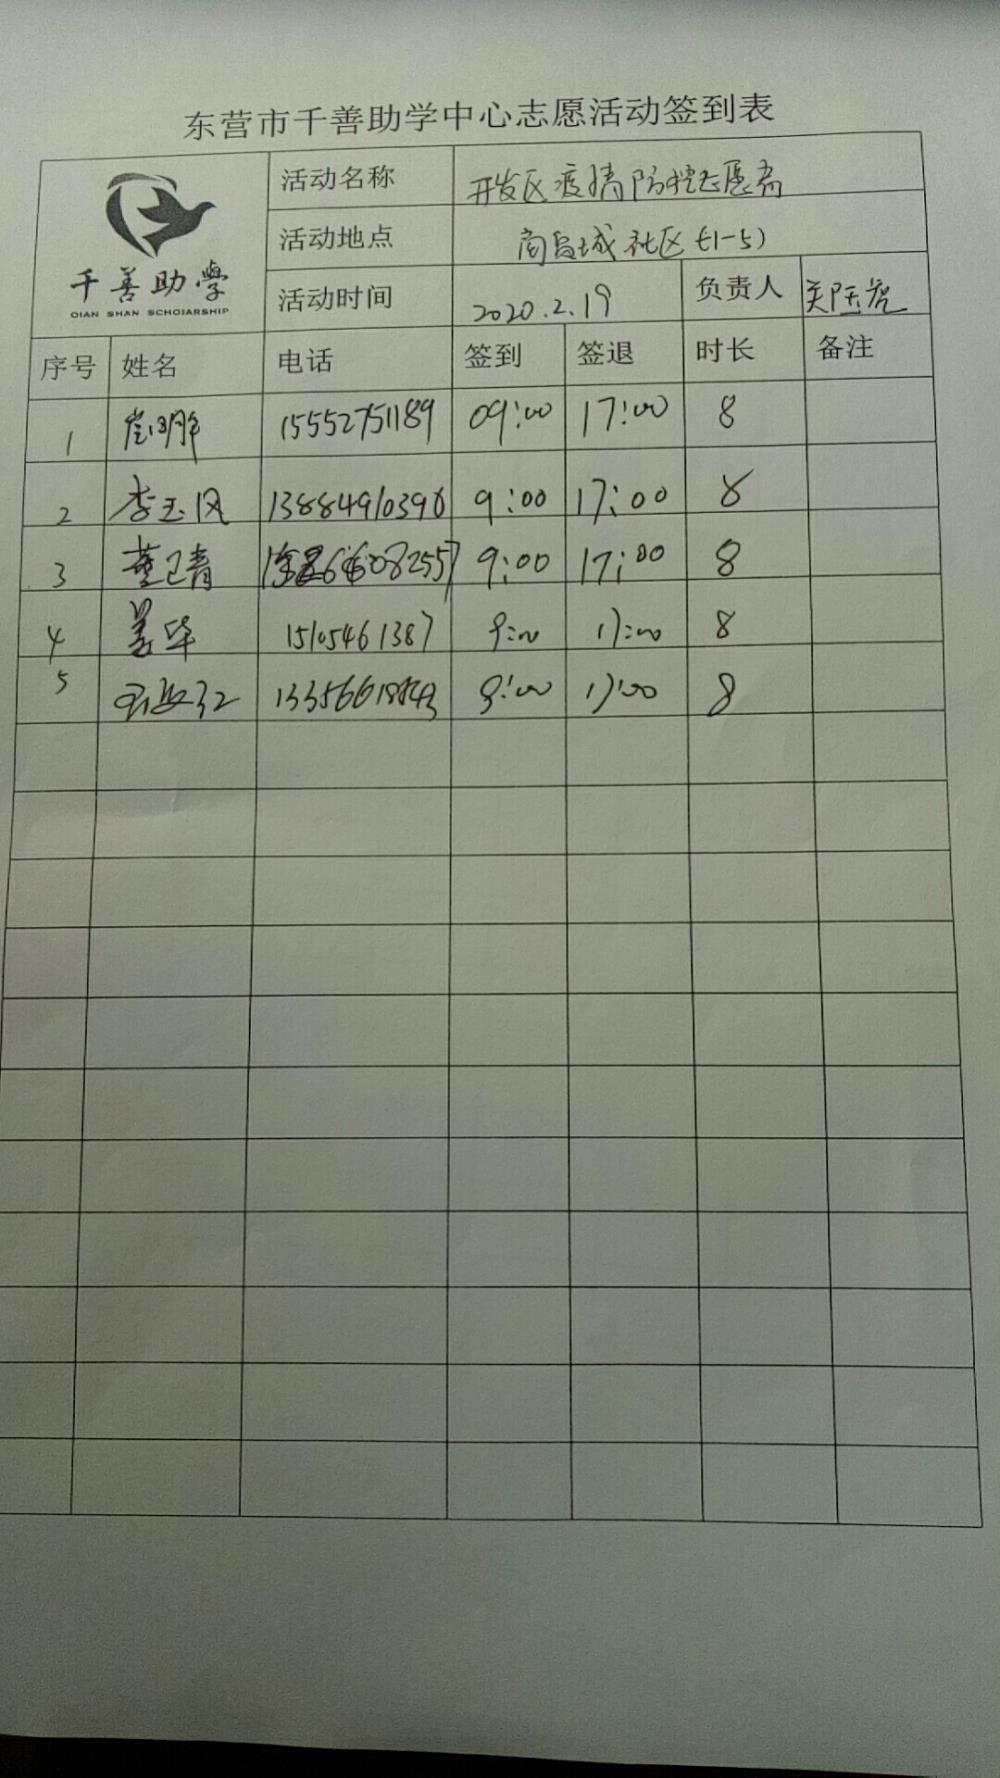 东营市千善助学中心志愿活动签到表
千善助學
QIAN SHAN SCHOIARSHIP
活动名称 开发区疫情防控志愿者
活动地点 商贸城社区(1-5)
活动时间 2020.2.19 负责人
序号 姓名 电话 签到 签退 时长 备注
1 15552751189 09:00 17:00 8
2 李玉凤 13884910396 9:00 17:00 8
3 董卫青 9:00 17:00 8
4 姜华 15105461387 9:00 17:00 8
5 9:00 17:00 8